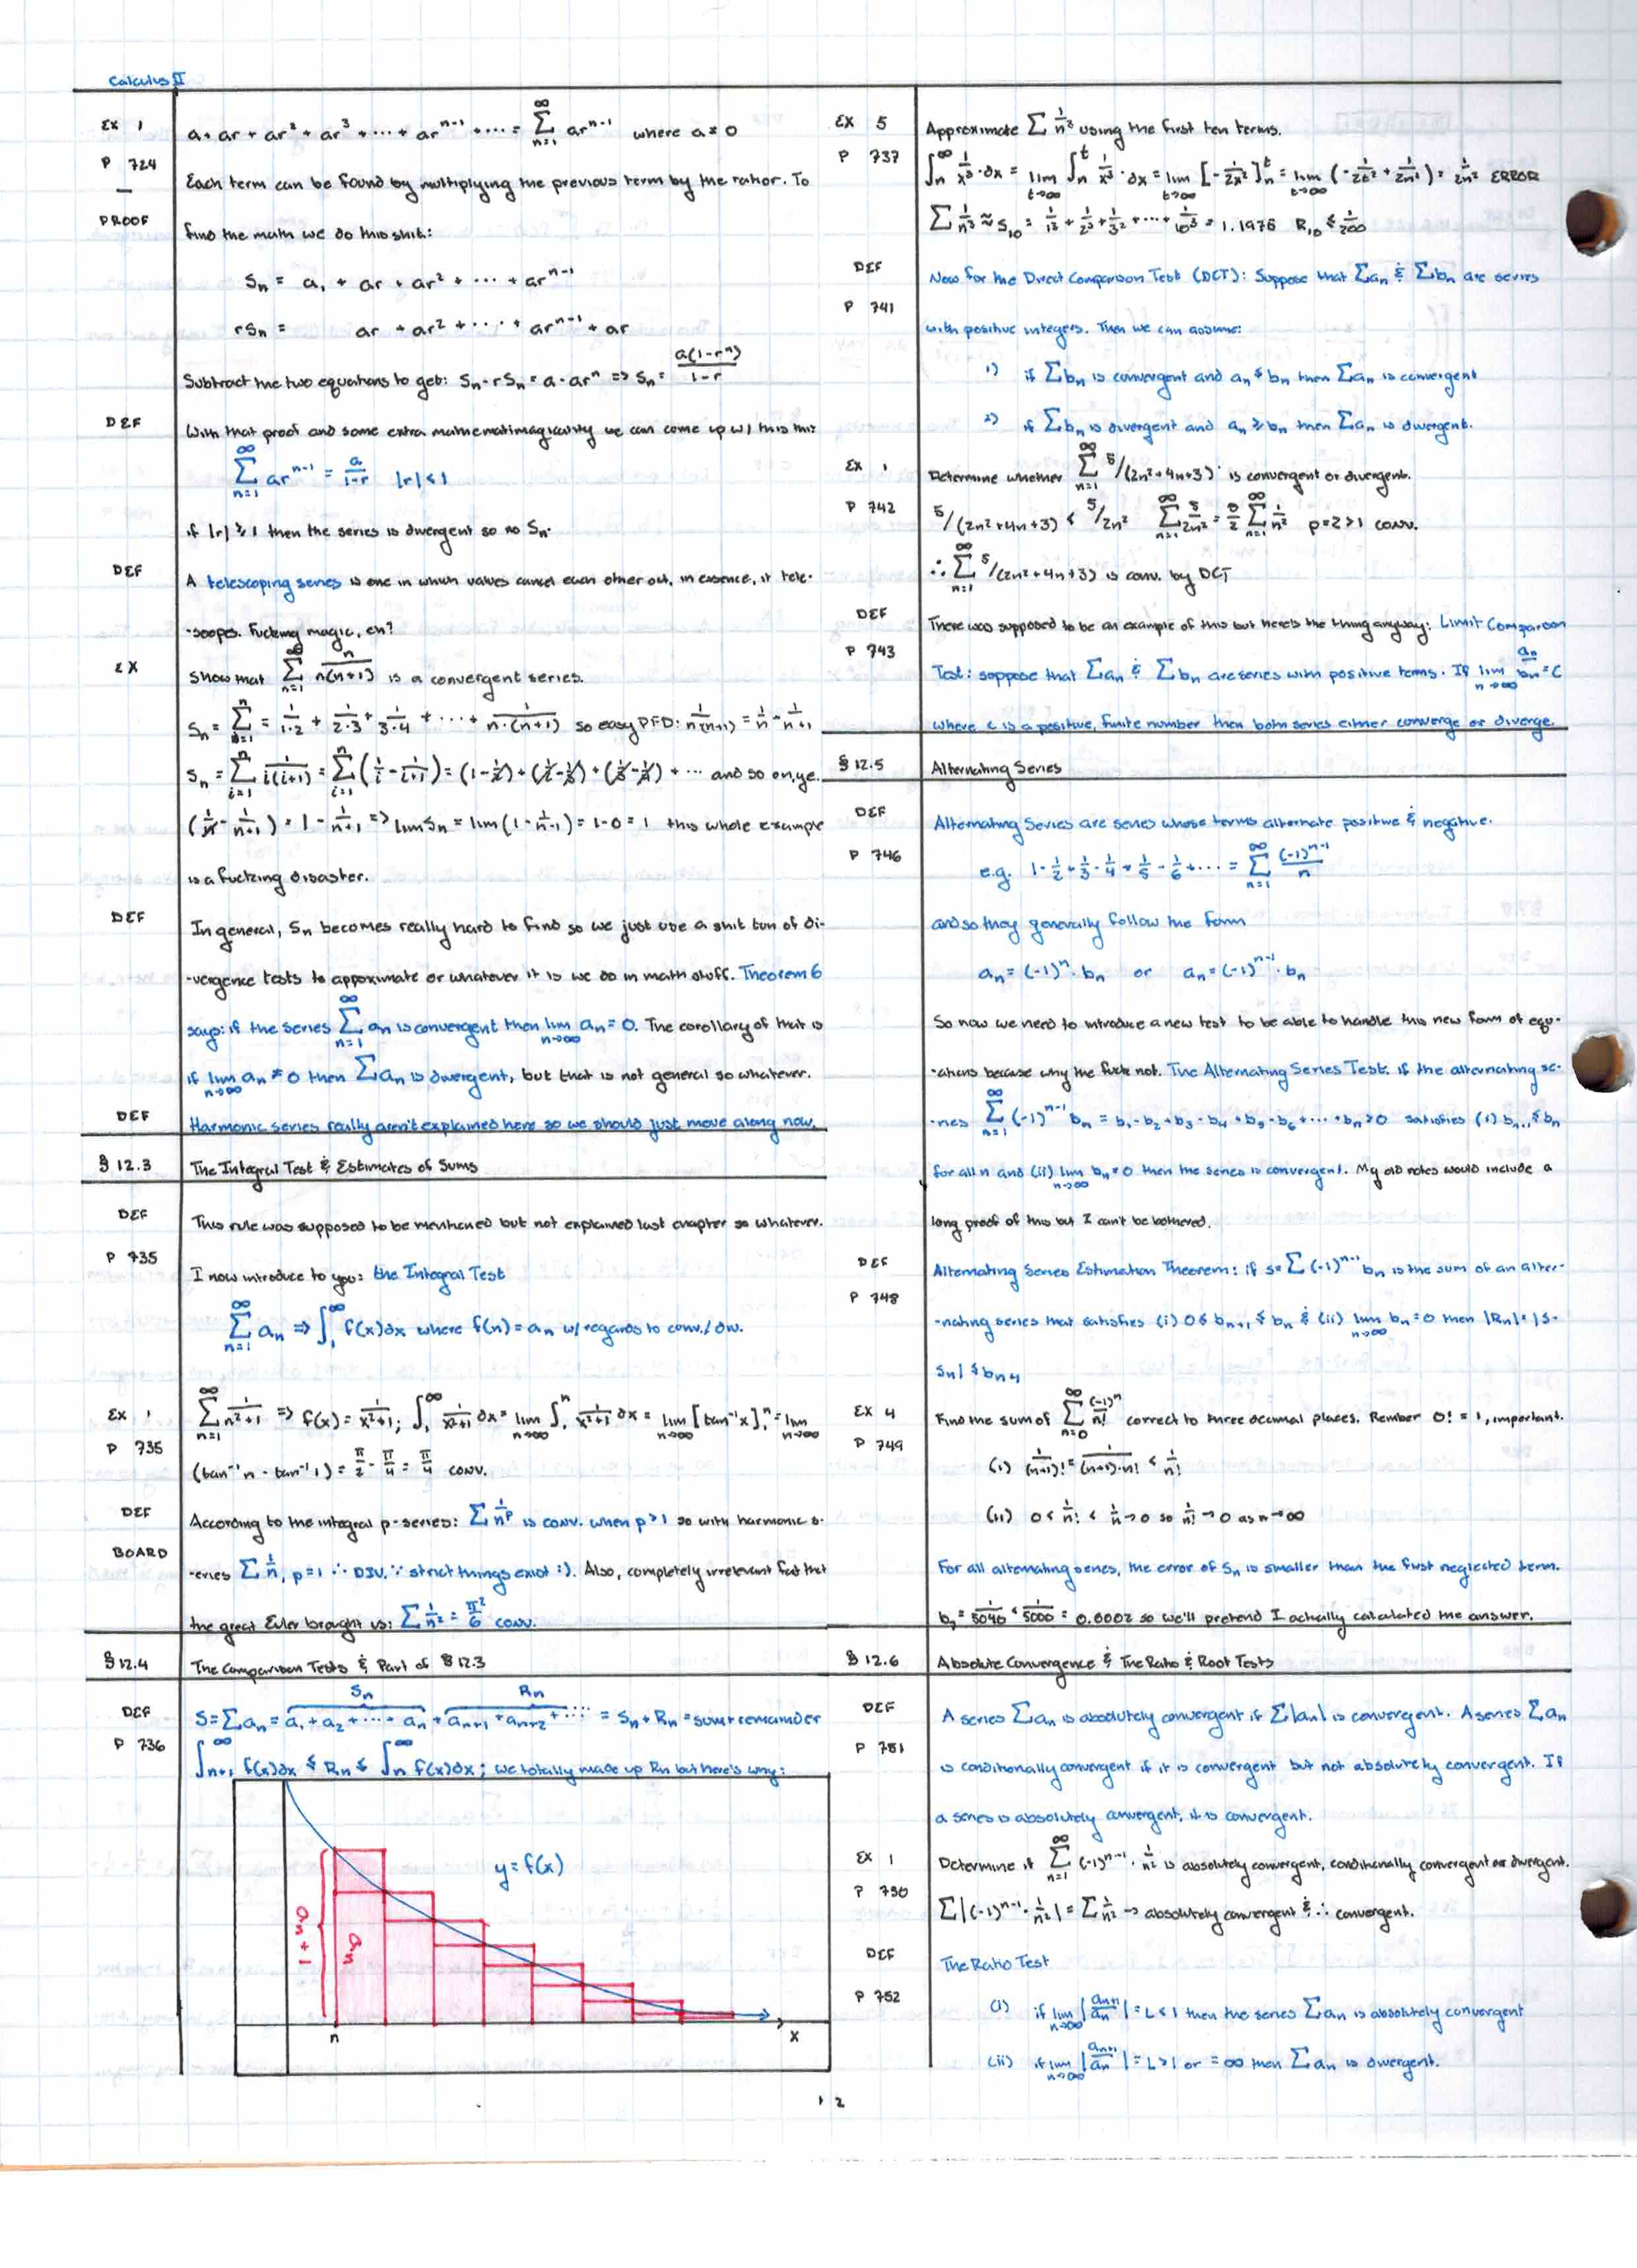 Calculus II
EX 1
P 724
—
PROOF
a + ar + ar² + ar³ + ··· + arⁿ⁻¹ + ··· = ∞∑n=1 arⁿ⁻¹ where a ≠ 0
Each term can be found by multiplying the previous term by the ratior. To
find the math we do this shit:
Sn = a, + ar + ar² + ··· + arⁿ⁻¹
rSn = ar + ar² + ··· + arⁿ⁻¹ + ar
Subtract the two equations to get: Sn - rSn = a - arⁿ => Sn = a(1-rⁿ)/1-r
DEF
With that proof and some extra mathematimagicality we can come up w/ this
∞∑n=1 arⁿ⁻¹ = a/1-r |r| < 1
if |r| ≥ 1 then the series is divergent so no Sn.
DEF
A telescoping series is one in which values cancel each other out, in essence, it tele-
-scopes. Fucking magic, eh?
EX
Show that ∞∑n=1 n/n(n+1) is a convergent series.
Sn = n∑i=1 = 1/1·2 + 1/2·3 + 1/3·4 + ··· + 1/n·(n+1) so easy PFD: 1/n(n+1) = 1/n - 1/n+1
Sn = n∑i=1 1/i(i+1) = n∑i=1 (1/i - 1/i+1) = (1-1/2) + (1/2-1/3) + (1/3-1/4) + ··· and so on, ye.
(1/n - 1/n+1) = 1 - 1/n+1 => lim Sn = lim (1 - 1/n-1) = 1-0 = 1 this whole example
is a fucking disaster.
DEF
In general, Sn becomes really hard to find so we just use a shit ton of di-
-vergence tests to approximate or whatever it is we do in math stuff. Theorem 6
says: if the series ∞∑n=1 an is convergent then lim n→∞ an = 0. The corollary of that is
if lim n→∞ an ≠ 0 then ∑an is divergent, but that is not general so whatever.
DEF
Harmonic series really aren't explained here so we should just move along now.
§ 12.3 The Integral Test & Estimates of Sums
DEF
P 735
This rule was supposed to be mentioned but not explained last chapter so whatever.
I now introduce to you: the Integral Test
∞∑n=1 an => ∫₁^∞ f(x)dx where f(n) = an w/ regards to conv./div.
EX 1
P 735
∞∑n=1 1/n²+1 => f(x) = 1/x²+1; ∫₁^∞ 1/x²+1 dx = lim n→∞ ∫₁ⁿ 1/x²+1 dx = lim n→∞ [tan⁻¹x]₁ⁿ = lim n→∞
(tan⁻¹n - tan⁻¹1) = π/2 - π/4 = π/4 conv.
DEF
BOARD
According to the integral p-series: ∑ 1/nᵖ is conv. when p > 1 so with harmonic s-
-eries ∑ 1/n, p=1 ∴ DIV. ∵ strict things exist :). Also, completely irrelevant fact that
the great Euler brought us: ∑ 1/n² = π²/6 conv.
§ 12.4 The Comparison Tests & Part of § 12.3
DEF
P 736
Sn Rn
S = ∑an = a₁ + a₂ + ··· + an + an+1 + an+2 + ··· = Sn + Rn = sum + remainder
∫n+1^∞ f(x)dx ≤ Rn ≤ ∫n^∞ f(x)dx; we totally made up Rn but here's why:
y = f(x)
an+1
an
n
x
EX 5
P 737
Approximate ∑ 1/n³ using the first ten terms.
∫n^∞ 1/x³ · dx = lim t→∞ ∫n^t 1/x³ · dx = lim t→∞ [-1/2x²]n^t = lim t→∞ (-1/2t² + 1/2n²) = 1/2n² ERROR
∑ 1/n³ ≈ S₁₀ = 1/1³ + 1/2³ + 1/3² + ··· + 1/10³ = 1.1975 R₁₀ ≤ 1/200
DEF
P 741
Now for the Direct Comparison Test (DCT): Suppose that ∑an & ∑bn are series
with positive integers. Then we can assume:
1) if ∑bn is convergent and an ≤ bn then ∑an is convergent
2) if ∑bn is divergent and an ≥ bn then ∑an is divergent.
EX 1
P 742
Determine whether ∞∑n=1 5/(2n²+4n+3) is convergent or divergent.
5/(2n²+4n+3) < 5/2n² ∞∑n=1 5/2n² = 5/2 ∞∑n=1 1/n² p=2>1 conv.
∴ ∞∑n=1 5/(2n²+4n+3) is conv. by DCT
DEF
P 743
There was supposed to be an example of this but here's the thing anyway: Limit Comparison
Test: suppose that ∑an & ∑bn are series with positive terms. If lim n→∞ an/bn = C
where c is a positive, finite number then both series either converge or diverge.
§ 12.5 Alternating Series
DEF
P 746
Alternating Series are series whose terms alternate positive & negative.
e.g. 1 - 1/2 + 1/3 - 1/4 + 1/5 - 1/6 + ··· = ∞∑n=1 (-1)ⁿ⁻¹/n
and so they generally follow the form
an = (-1)ⁿ · bn or an = (-1)ⁿ⁻¹ · bn
So now we need to introduce a new test to be able to handle this new form of equ-
-ations because why the fuck not. The Alternating Series Test: if the alternating se-
-ries ∞∑n=1 (-1)ⁿ⁻¹ bn = b₁ - b₂ + b₃ - b₄ + b₅ - b₆ + ··· + bn > 0 satisfies (i) bn+1 ≤ bn
for all n and (ii) lim n→∞ bn = 0 then the series is convergent. My old notes would include a
long proof of this but I can't be bothered.
DEF
P 748
Alternating Series Estimation Theorem: if s = ∑(-1)ⁿ⁻¹ bn is the sum of an alter-
-nating series that satisfies (i) 0 ≤ bn+1 ≤ bn & (ii) lim n→∞ bn = 0 then |Rn| = |S-
Sn| ≤ bn+1
EX 4
P 749
Find the sum of ∞∑n=0 (-1)ⁿ/n! correct to three decimal places. Rember 0! = 1, important.
(i) 1/(n+1)! = 1/(n+1)·n! < 1/n!
(ii) 0 < 1/n! < 1/n → 0 so 1/n! → 0 as n→∞
For all alternating series, the error of Sn is smaller than the first neglected term.
b₇ = 1/5040 < 1/5000 = 0.0002 so we'll pretend I actually calculated the answer.
§ 12.6 Absolute Convergence & The Ratio & Root Tests
DEF
P 751
A series ∑an is absolutely convergent if ∑|an| is convergent. A series ∑an
is conditionally convergent if it is convergent but not absolutely convergent. If
a series is absolutely convergent, it is convergent.
EX 1
P 750
Determine if ∞∑n=1 (-1)ⁿ⁻¹ · 1/n² is absolutely convergent, conditionally convergent or divergent.
∑|(-1)ⁿ⁻¹ · 1/n²| = ∑ 1/n² → absolutely convergent & ∴ convergent.
DEF
P 752
The Ratio Test
(i) if lim n→∞ |an+1/an| = L < 1 then the series ∑an is absolutely convergent
(ii) if lim n→∞ |an+1/an| = L > 1 or = ∞ then ∑an is divergent.
12